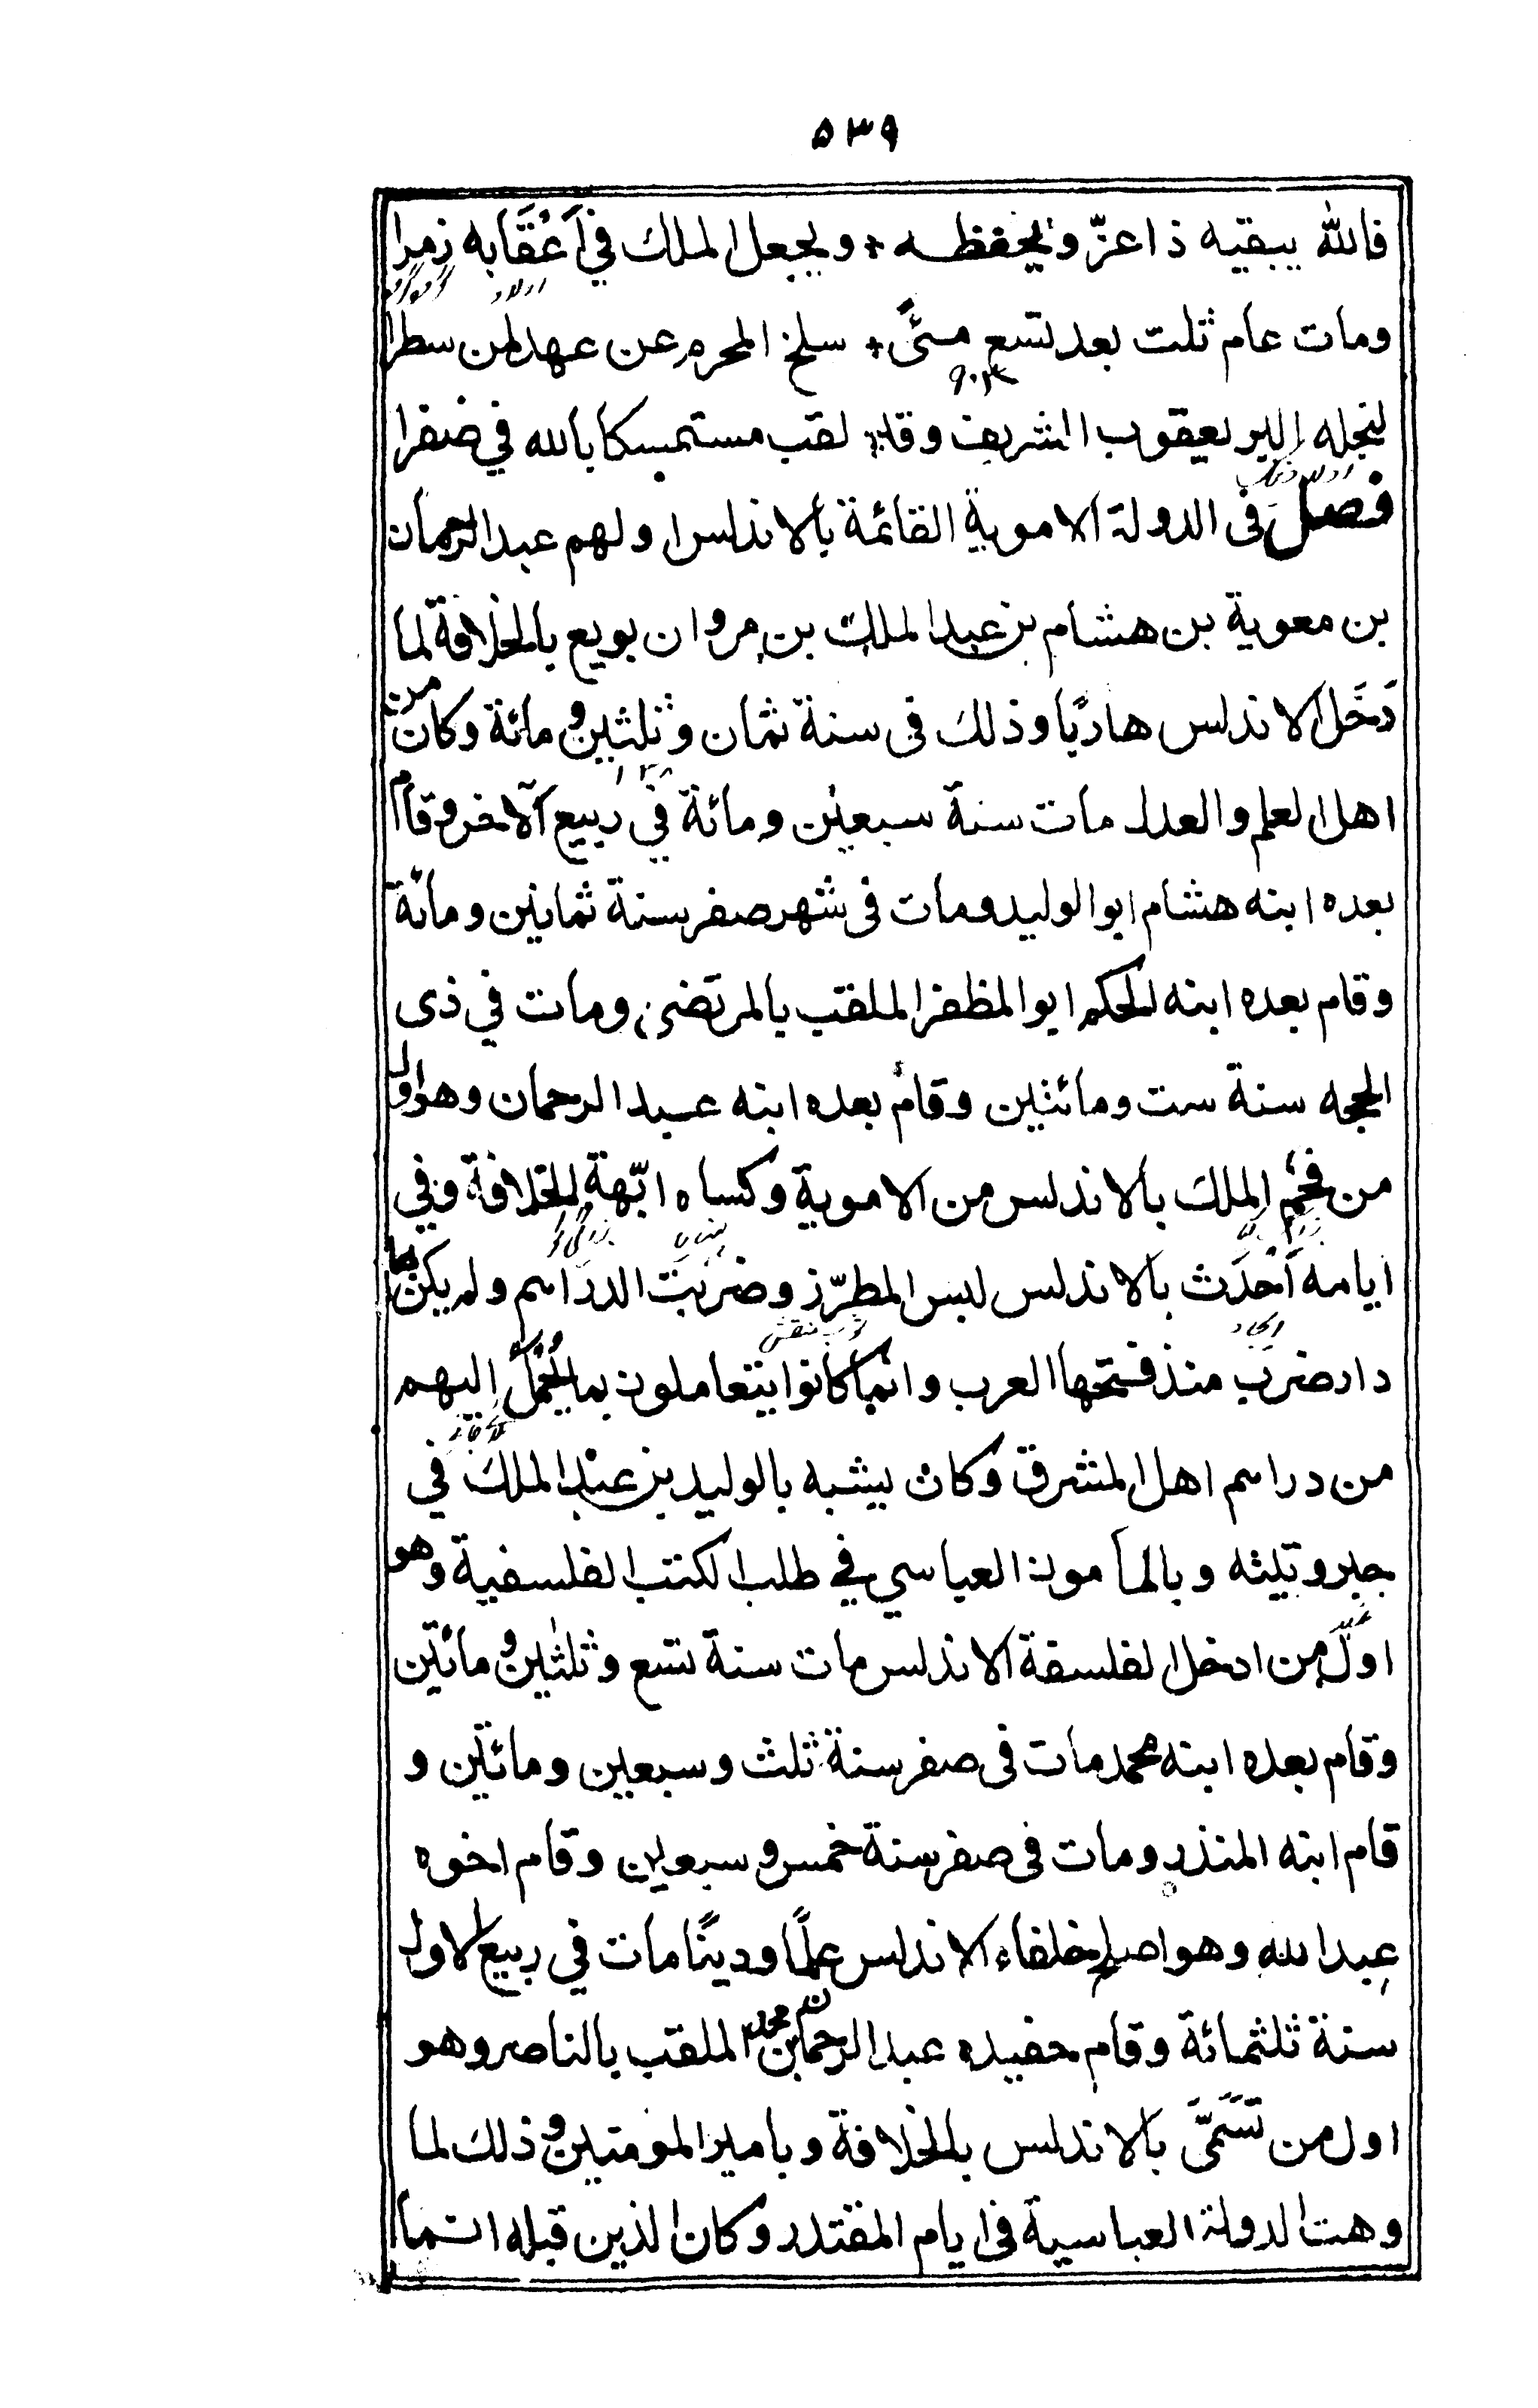 ٥٣٩
فالله يبقيه ذا عزّ ويحفظه + ويجعل الملك في أَعْقَابه زمرا
ومات عام ثلث بعد تسع مئً + سلخ المحرم عن عهد لمن سطرا
٩٠٣
لنجله البر يعقوب الشريف وقد لقب مستمسكا بالله في صفرا
فصل فى الدولة الاموية القائمة بالاندلس اولهم عبد الرحمان
بن معوية بن هشام بن عبد الملك بن مروان بويع بالخلافة لما
دَخَل الاندلس هاربًا وذلك فى سنة ثمان وثلثين ومائة وكان من
١٣٨
اهل العلم والعدل مات سنة سبعين ومائة في ربيع الآخر وقام
بعده ابنه هشام ابو الوليد ومات فى شهر صفر سنة ثمانين ومائة
وقام بعده ابنه الحكم ابو المظفر الملقب بالمرتضى ومات في ذى
الحجه سنة ست ومائتين وقام بعده ابنه عبد الرحمان وهو اول
من فخّم الملك بالاندلس من الاموية وكساه ابّهة الخلافة وفي
ايامه اَحْدَث بالاندلس لبس المطرّز وضربت الدراسم ولم يكن بها
دار ضرب منذ فتحها العرب وانما كانوا يتعاملون بما يُحْمَل اليهم
من دراسم اهل المشرق وكان يشبه بالوليد بن عبد الملك في
جبروتيثه وبالمأمون العباسي في طلب الكتب الفلسفية وهو
اول من ادخل الفلسفة الاندلس مات سنة تسع وثلثين ومائتين
وقام بعده ابنه محمد مات فى صفر سنة ثلث وسبعين ومائتين و
قام ابنه المنذر ومات فى صفر سنة خمس و سبعين وقام اخوه
عبد الله وهو اصلح خلفاء الاندلس علمًا ودينًا مات في ربيع الاول
سنة ثلثمائة وقام حفيده عبد الرحمان بن محمد الملقب بالناصر وهو
اول من تَسَمَّى بالاندلس بالخلافة وبامير المومنين وذلك لما
وهت الدولة العباسية فى ايام المقتدر وكان الذين قبله انما